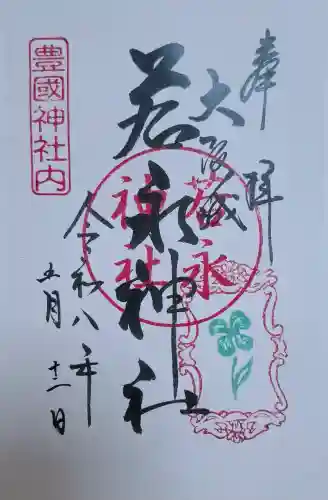 奉拝
大阪城
若永神社
若永
神社
豊國神社内
令和八年
五月十二日